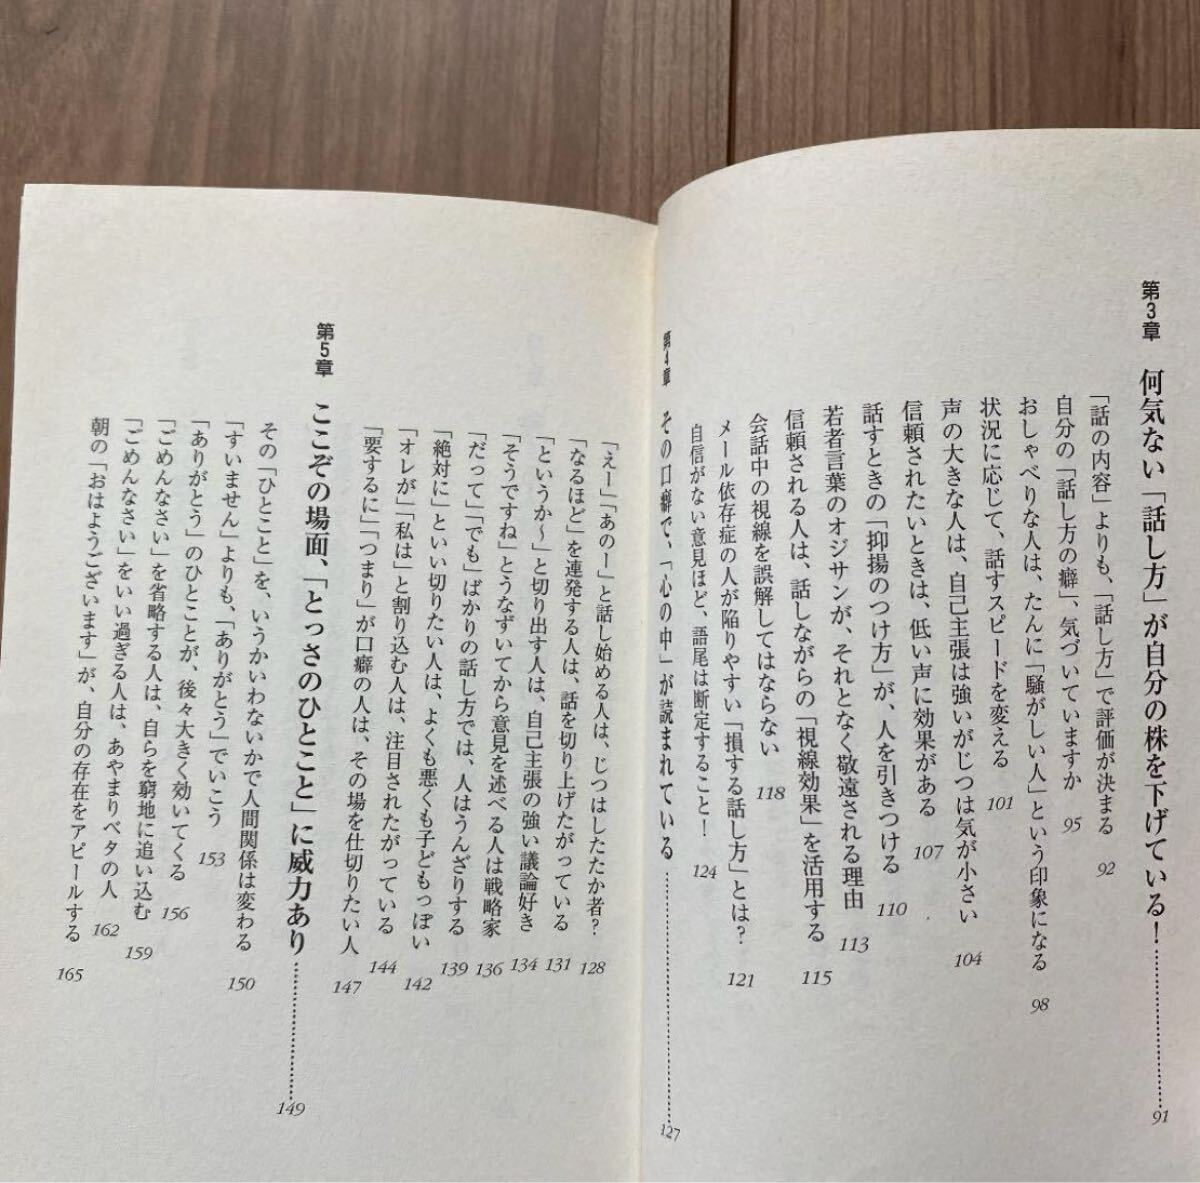 第3章 何気ない「話し方」が自分の株を下げている！ 91
「話の内容」よりも、「話し方」で評価が決まる 92
自分の「話し方の癖」、気づいていますか 95
おしゃべりな人は、たんに「騒がしい人」という印象になる 98
状況に応じて、話すスピードを変える 101
声の大きな人は、自己主張は強いがじつは気が小さい 104
信頼されたいときは、低い声に効果がある 107
話すときの「抑揚のつけ方」が、人を引きつける 110
若者言葉のオジサンが、それとなく敬遠される理由 113
信頼される人は、話しながらの「視線効果」を活用する 115
会話中の視線を誤解してはならない 118
メール依存症の人が陥りやすい「損する話し方」とは？ 121
自信がない意見ほど、語尾は断定すること！ 124
第4章 その口癖で、「心の中」が読まれている 127
「えー」「あのー」と話し始める人は、じつはしたたか者？ 128
「なるほど」を連発する人は、話を切り上げたがっている 131
「というか〜」と切り出す人は、自己主張の強い議論好き 134
「そうですね」とうなずいてから意見を述べる人は戦略家 136
「だって」「でも」ばかりの話し方では、人はうんざりする 139
「絶対に」といい切りたい人は、よくも悪くも子どもっぽい 142
「オレが」「私は」と割り込む人は、注目されたがっている 144
「要するに」「つまり」が口癖の人は、その場を仕切りたい人 147
第5章 ここぞの場面、「とっさのひとこと」に威力あり 149
その「ひとこと」を、いうかいわないかで人間関係は変わる 150
「すいません」よりも、「ありがとう」でいこう 153
「ありがとう」のひとことが、後々大きく効いてくる 156
「ごめんなさい」を省略する人は、自らを窮地に追い込む 159
「ごめんなさい」をいい過ぎる人は、あやまりベタの人 162
朝の「おはようございます」が、自分の存在をアピールする 165